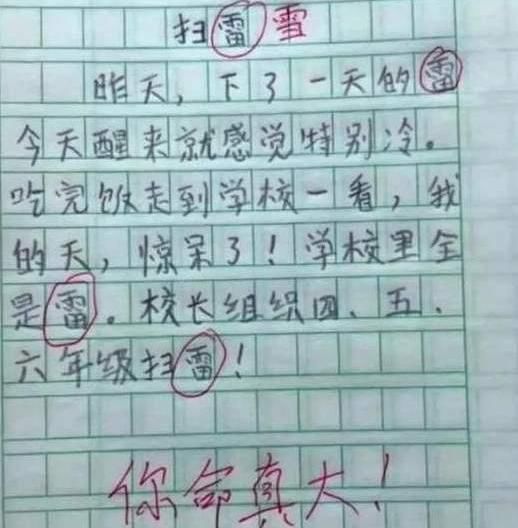 扫雷 雪
昨天，下了一天的雷
今天醒来就感觉特别冷。
吃完饭走到学校一看，我
的天，惊呆了！学校里全
是雷。校长组织四、五、
六年级扫雷！
你命真大！